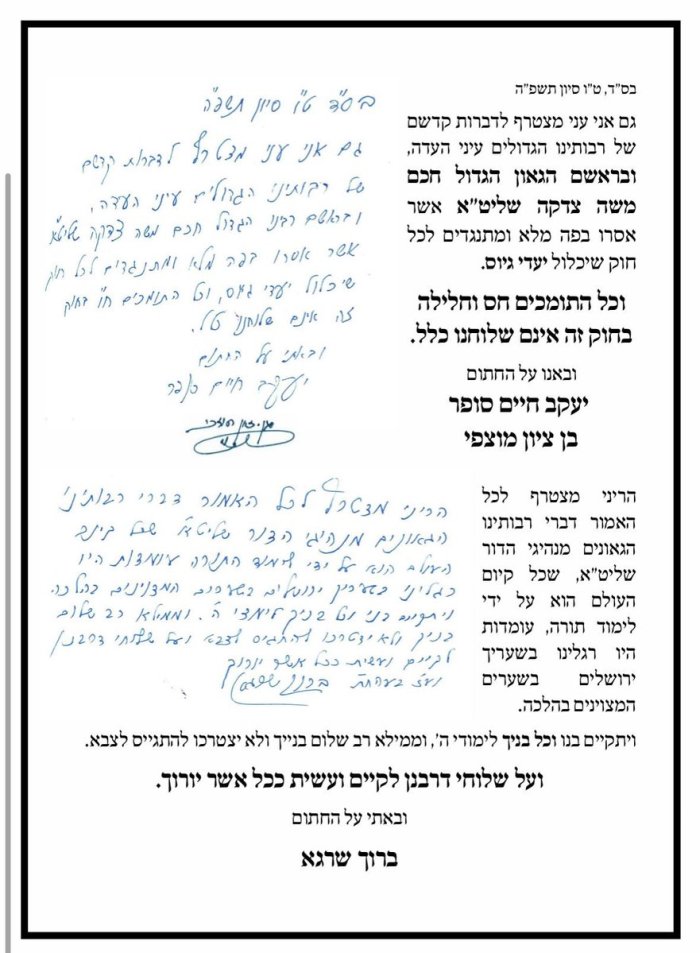 בס"ד, ט"ו סיון תשפ"ה
גם אני עני מצטרף לדברות קדשם
של רבותינו הגדולים עיני העדה,
ובראשם הגאון הגדול חכם
משה צדקה שליט"א אשר
אסרו בפה מלא ומתנגדים לכל
חוק שיכלול יעדי גיוס.
וכל התומכים חס וחלילה
בחוק זה אינם שלוחנו כלל.
ובאנו על החתום
יעקב חיים סופר
בן ציון מוצפי
בס"ד ט"ו סיון תשפ"ה
גם אני עני מצטרף לדברות קדשם
של רבותינו הגדולים עיני העדה,
ובראשם רבנו הגדול חכם משה צדקה שליט"א
אשר אסרו בפה מלא ומתנגדים לכל חוק
שיכלול יעדי גיוס, וכל התומכים ח"ו בחוק
זה אינם שלוחנו כלל.
ובאתי על החתום
יעקב חיים סופר
הריני מצטרף לכל
האמור דברי רבותינו
הגאונים מנהיגי הדור
שליט"א, שכל קיום
העולם הוא על ידי
לימוד תורה, עומדות
היו רגלינו בשעריך
ירושלים בשערים
המצוינים בהלכה.
ויתקיים בנו וכל בניך לימודי ה', וממילא רב שלום בנייך ולא יצטרכו להתגייס לצבא.
ועל שלוחי דרבנן לקיים ועשית ככל אשר יורוך.
ובאתי על החתום
ברוך שרגא
הריני מצטרף לכל האמור דברי רבותינו
הגאונים מנהיגי הדור שליט"א שכל קיום
העולם הוא על ידי לימוד התורה עומדות היו
רגלינו בשעריך ירושלים בשערים המצוינים בהלכה
ויתקיים בנו וכל בניך לימודי ה'. וממילא רב שלום
בניך ולא יצטרכו להתגיס לצבא ועל שלוחי דרבנן
לקיים ועשית ככל אשר יורוך
ברוך שרגא